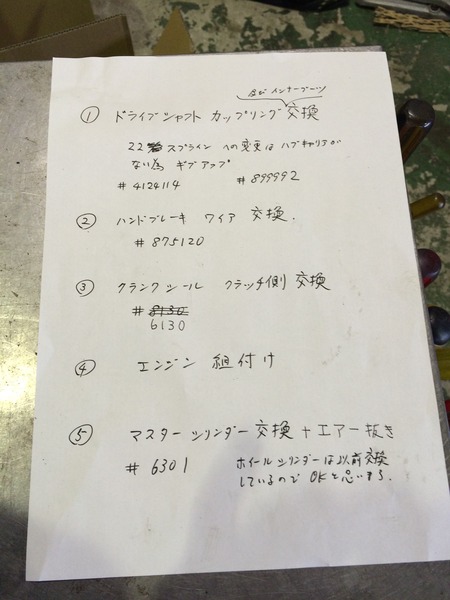 及び インナーブーツ
① ドライブシャフト カップリング 交換
22 スプライン への変更は ハブキャリアが
ない為 ギブアップ
# 4124114 # 899992
② ハンドブレーキ ワイア 交換.
# 875120
③ クランクシール クラッチ側 交換
# 8130
6130
④ エンジン 組付け
⑤ マスターシリンダー交換 + エアー抜き
# 6301 ホイールシリンダーは以前交換
しているので OKと思います.